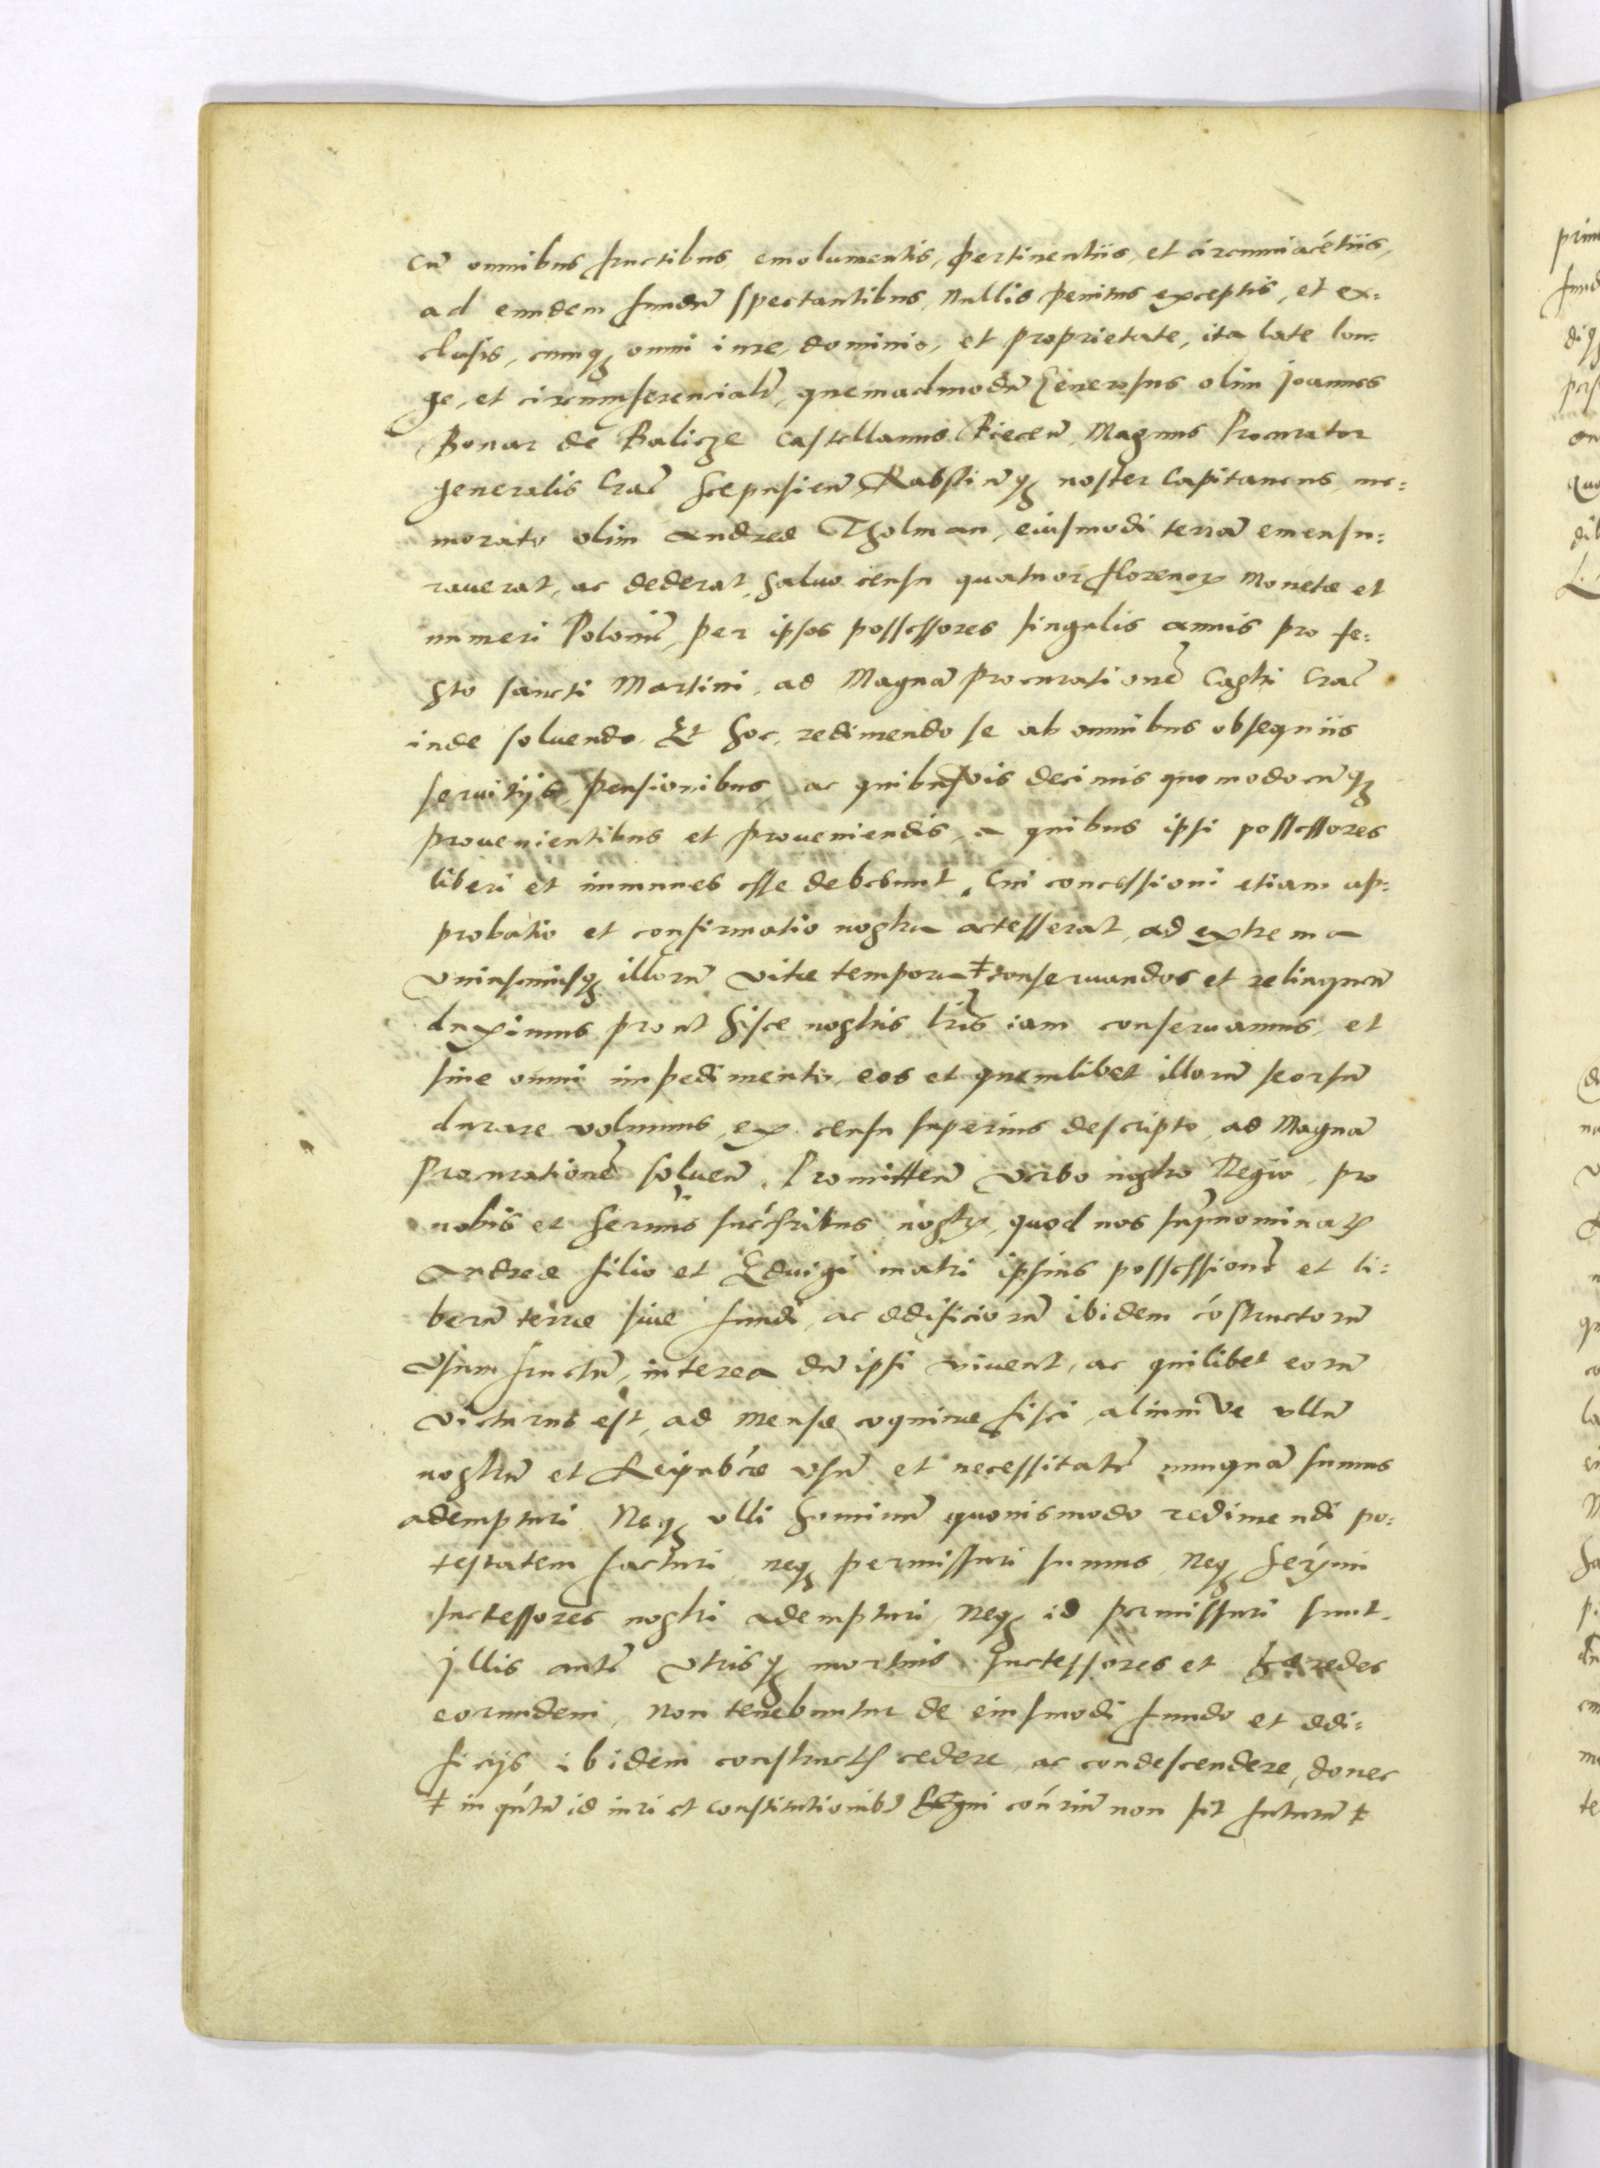 cū omnibus fructibus emolumentis, pertinentiis, et circumiacētiis,
ad eundem fundū spectantibus, nullis penitus exceptis, et ex:
clusis, cumq₃ omni iure, dominio, et proprietate, ita late lon:
ge, et circumferencialr̄, quemadmodū Generosus olim Joannes
Bonar de Balicze Castellanus Biecen̄, Magnus Procurator
generalis Crac̄ Scepusien̄, Rabstinq₃ noster Capitaneus, me:
morato olim Andreæ Tholman, eiusmodi terrā emensu:
rauerat, ac dederat, saluo censu quatuor florenoꝝ monetæ et
numeri Polonic̄, per ipsos possessores singulis annis pro fe:
sto sancti Martini, ad Magnā procurationē Castri Crac̄
inde soluendo. Et hoc, redimendo se ab omnibus obsequiis
seruitijs, pensionibus ac quibusvis decimis quomodocūq₃
prouenientibus et proueniendis, a quibus ipsi possessores
liberi et immunes esse debebunt, Cui concessioni etiam ap:
probatio et confirmatio nostra accesserat, ad extrema
vniuscuiusq₃ illorū vitæ tempora ‡ conseruandos et relinquen̄
duximus prout hisce nostris lrīs iam conseruamus, et
sine omni impedimento, eos et quemlibet illorū seorsū
durare volumus, ex censu superius descripto, ad Magnā
Procurationē soluen̄. Promitten̄ verbo nostro Regio, pro
nobis et Sermis succ̄sribus nostrꝭ, quod nos supnominaꝭ
Andreæ filio et Eduigi matri ipsius possessionē et li:
berū terræ siue fundi, ac ædificiorū ibidem cōstructorū
vsumfructū, interea dū ipsi viuent, ac quilibet eorū
victurus est, ad mensæ coquinæ fisci, aliumve ullū
nostrū et Reipub̄cæ vsū et necessitatē nunquā sumus
adempturi. Neq₃ ulli hominū quouismodo redimendi po:
testatem facturi, neq₃ permissuri sumus, Neq₃ Serm̄i
successores nostri adempturi, Neq₃ id permissuri sunt.
Illis autē vtrisq₃ mortuis, successores et hæredes
eorundem, non tenebuntur de eiusmodi fundo et ædi:
ficijs ibidem constructꝭ cedere, ac condescendere, donec
‡ in q̄ntū id iuri et constitutionibꝰ Regni cōn̄riū non sit futurū ‡